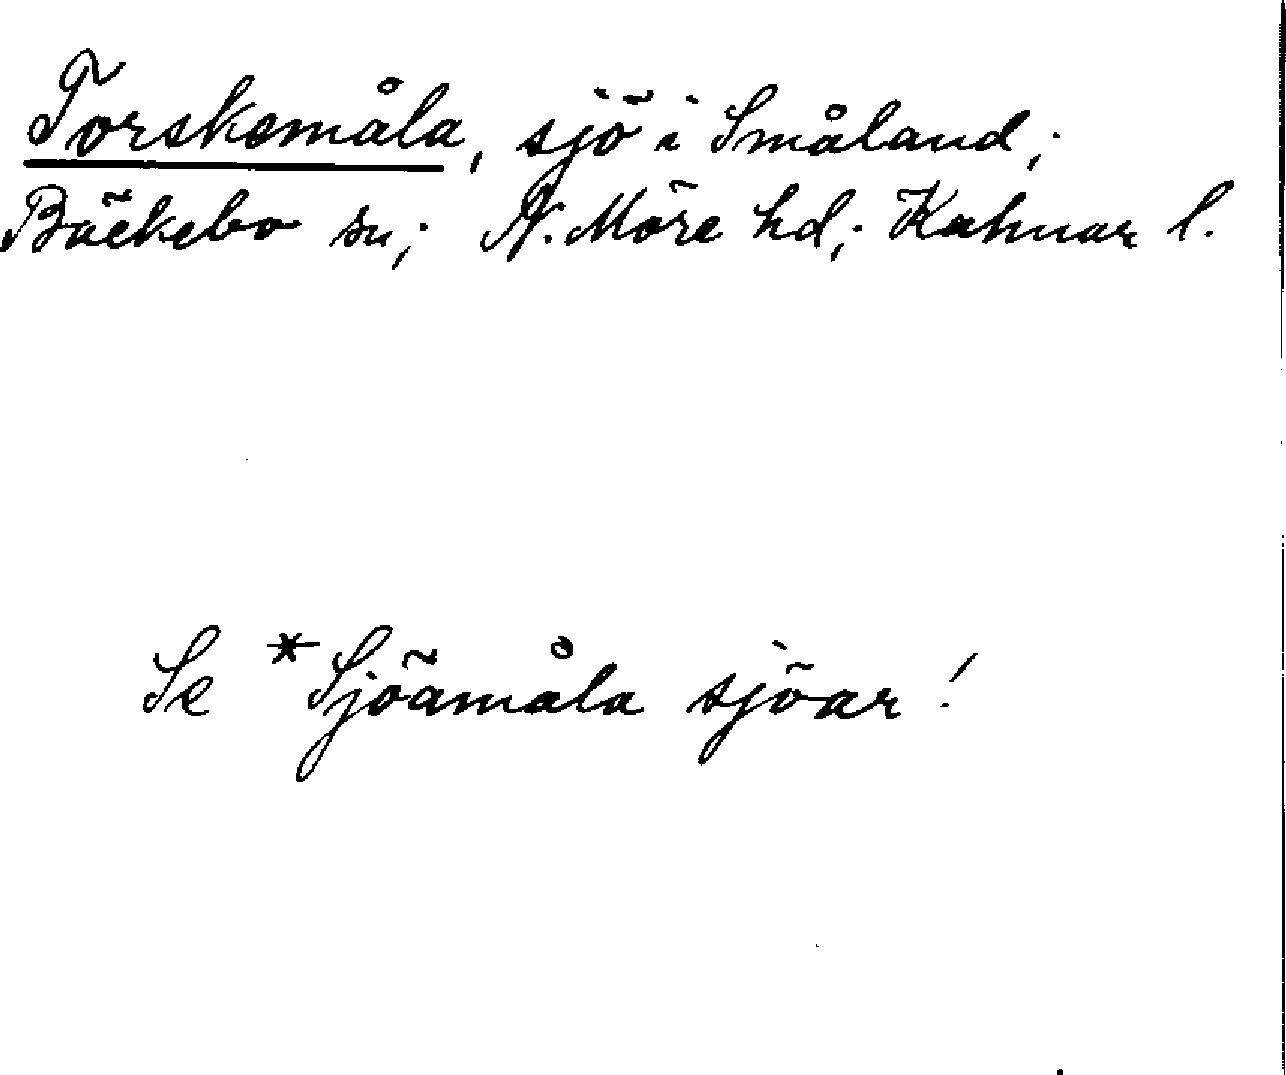 Torskemåla, sjö i Småland;
Bäckebo sn; N. Möre hd; Kalmar l.
Se *Sjöamåla sjöar!